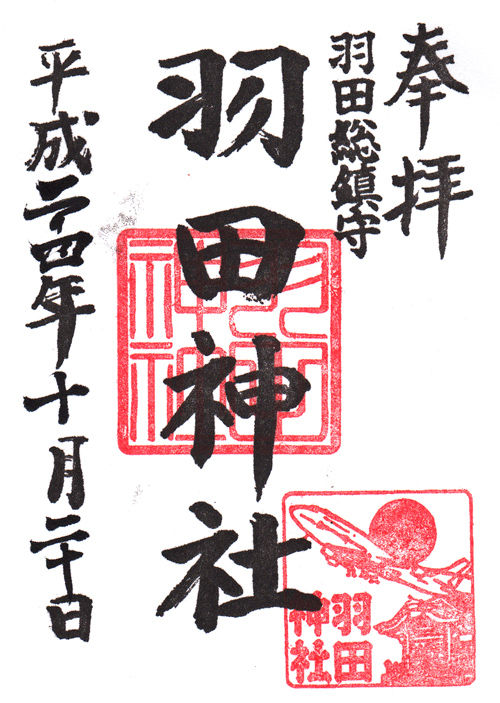 奉拝
羽田総鎮守
羽田神社
平成二四年十月二十日
羽田
神社
羽田
神社